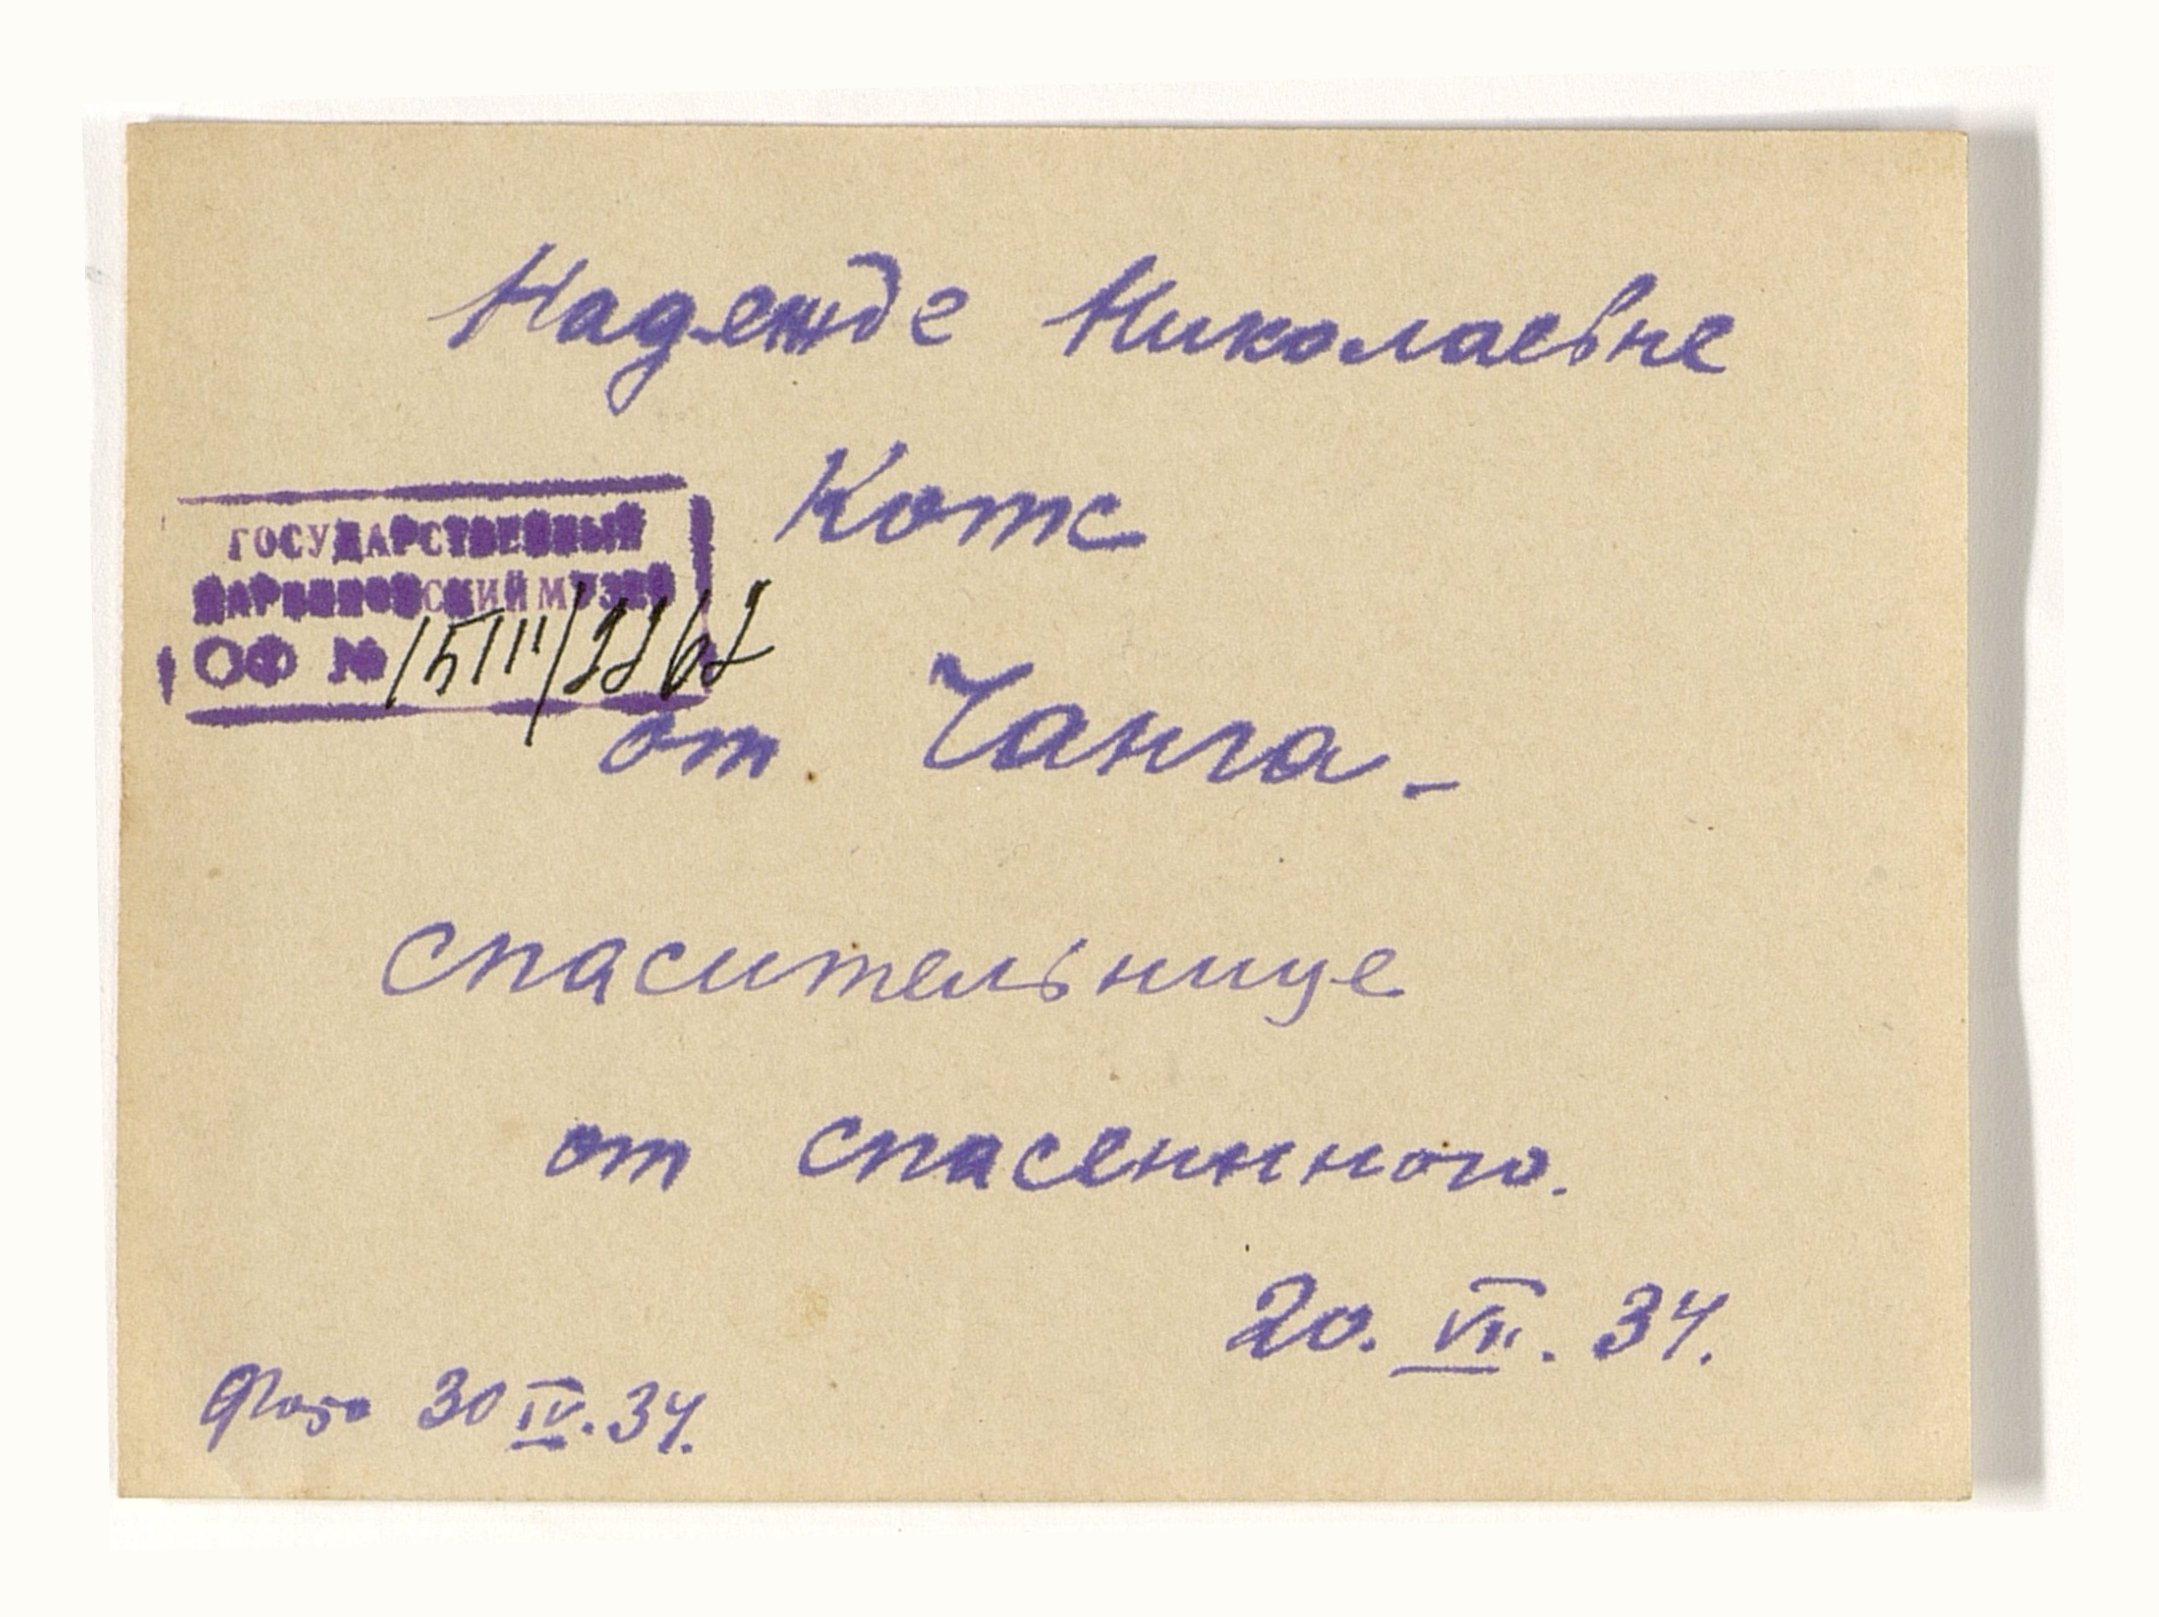 Надежде Николаевне
Котс
ГОСУДАРСТВЕННЫЙ
ДАРВИНОВСКИЙ МУЗЕЙ
ОФ №
от Чанга -
спасительнице
от спасенного.
20. VII. 34.
Фото 30 IV. 34.